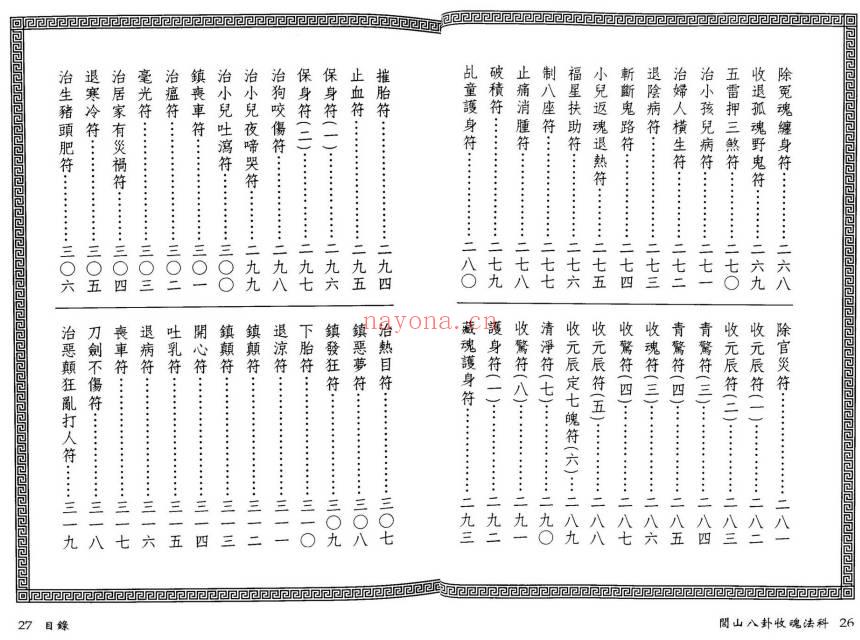 除冤魂纏身符⋯⋯⋯⋯二六八
收退孤魂野鬼符⋯⋯⋯⋯二六九
五雷押三煞符⋯⋯⋯⋯二七〇
治小孩兒病符⋯⋯⋯⋯二七一
治婦人橫生符⋯⋯⋯⋯二七二
退陰病符⋯⋯⋯⋯二七三
斬斷鬼路符⋯⋯⋯⋯二七四
小兒返魂退熱符⋯⋯⋯⋯二七五
福星扶助符⋯⋯⋯⋯二七六
制八座符⋯⋯⋯⋯二七七
止痛消腫符⋯⋯⋯⋯二七八
破積符⋯⋯⋯⋯二七九
乩童護身符⋯⋯⋯⋯二八〇
除官災符⋯⋯⋯⋯二八一
收元辰符(一)⋯⋯⋯⋯二八二
收元辰符(二)⋯⋯⋯⋯二八三
青驚符(三)⋯⋯⋯⋯二八四
青驚符(四)⋯⋯⋯⋯二八五
收魂符(三)⋯⋯⋯⋯二八六
收驚符(四)⋯⋯⋯⋯二八七
收元辰符(五)⋯⋯⋯⋯二八八
收元辰定七魄符(六)⋯⋯二八九
清淨符(七)⋯⋯⋯⋯二九〇
收驚符(八)⋯⋯⋯⋯二九一
護身符(一)⋯⋯⋯⋯二九二
藏魂護身符⋯⋯⋯⋯二九三
閭山八卦收魂法科 26
摧胎符⋯⋯⋯⋯二九四
止血符⋯⋯⋯⋯二九五
保身符(一)⋯⋯⋯⋯二九六
保身符(二)⋯⋯⋯⋯二九七
治狗咬傷符⋯⋯⋯⋯二九八
治小兒夜啼哭符⋯⋯⋯⋯二九九
治小兒吐瀉符⋯⋯⋯⋯三〇〇
鎮喪車符⋯⋯⋯⋯三〇一
治瘟符⋯⋯⋯⋯三〇二
毫光符⋯⋯⋯⋯三〇三
治居家有災禍符⋯⋯⋯⋯三〇四
退寒冷符⋯⋯⋯⋯三〇五
治生豬頭肥符⋯⋯⋯⋯三〇六
治熱目符⋯⋯⋯⋯三〇七
鎮惡夢符⋯⋯⋯⋯三〇八
鎮發狂符⋯⋯⋯⋯三〇九
下胎符⋯⋯⋯⋯三一〇
退涼符⋯⋯⋯⋯三一一
鎮顛符⋯⋯⋯⋯三一二
鎮顛符⋯⋯⋯⋯三一三
開心符⋯⋯⋯⋯三一四
吐乳符⋯⋯⋯⋯三一五
退病符⋯⋯⋯⋯三一六
喪車符⋯⋯⋯⋯三一七
刀劍不傷符⋯⋯⋯⋯三一八
治惡顛狂亂打人符⋯⋯三一九
27 目錄
nayona.cn